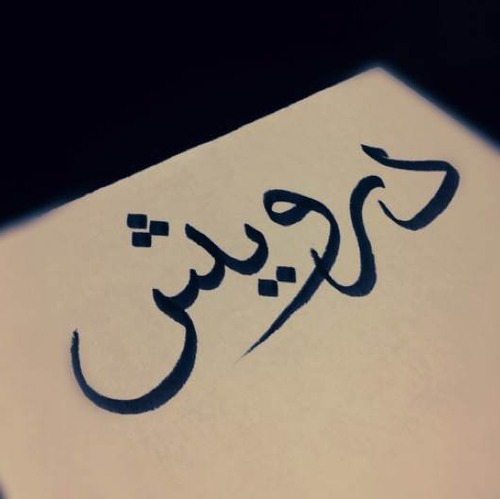 درويش